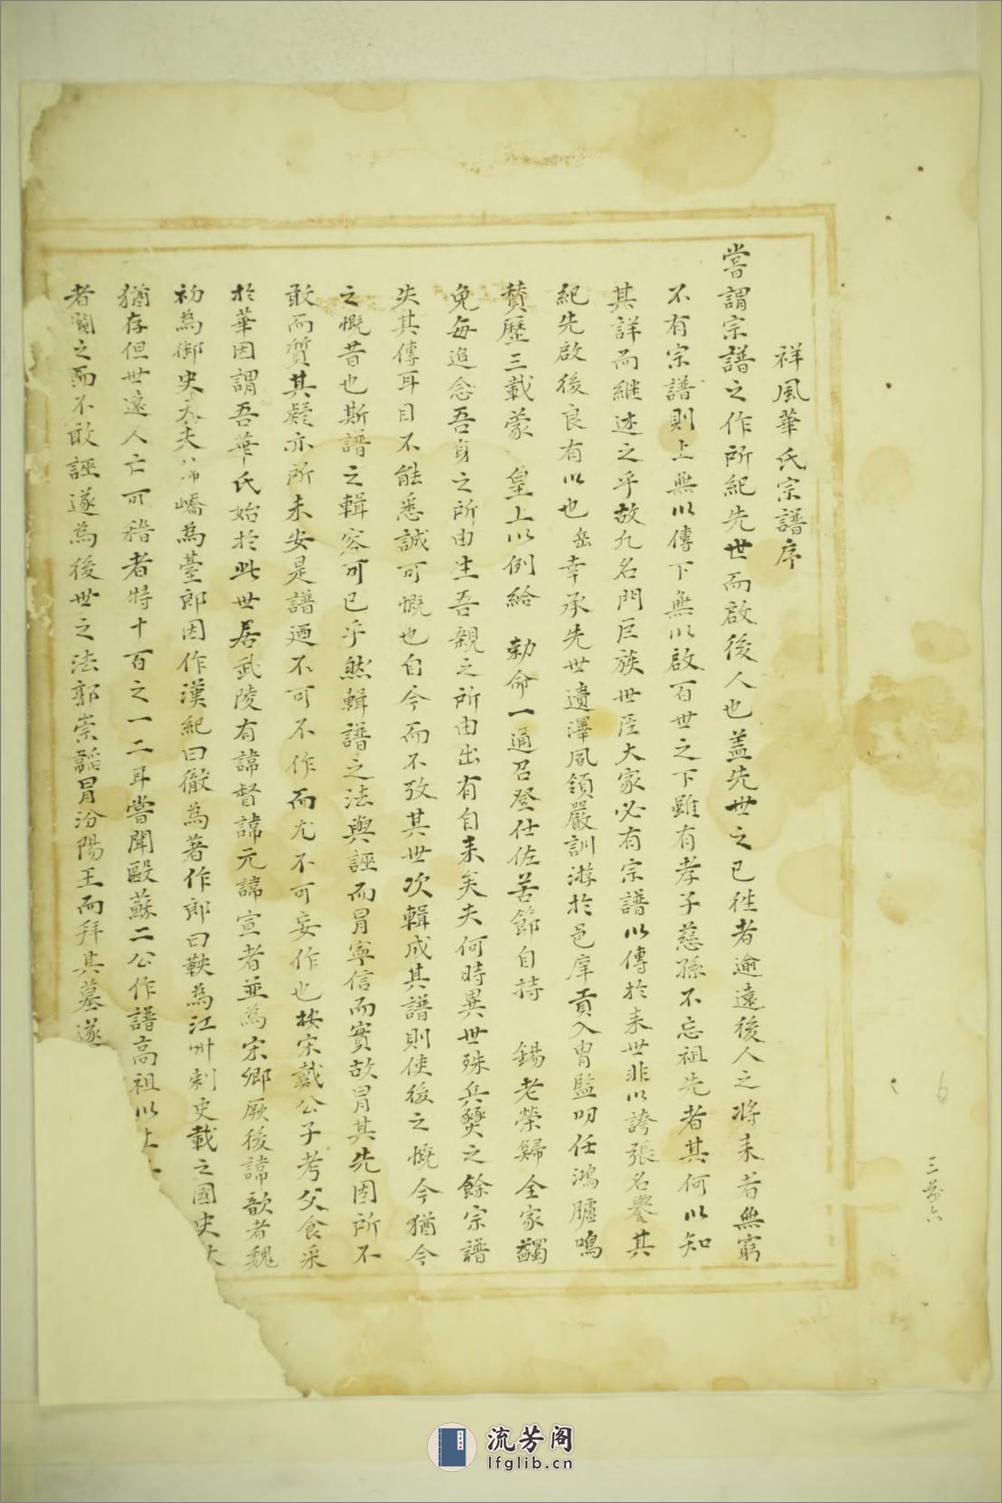 祥風華氏宗譜序
嘗謂宗譜之作所紀先世而啟後人也盖先世之已徃者逾遠後人之將来者無窮
不有宗譜則上無以傳下無以啟百世之下雖有孝子慈孫不忘祖先者其何以知
其詳而継述之乎故九名門巨族世臣大家必有宗譜以傳於来世非以誇張名譽其
紀先啟後良有以也岳幸承先世遺澤夙領嚴訓游於邑庠貢入胄監叨任鴻臚鳴
賛歷三載蒙 皇上以例給 勅命一通召登仕佐苦節自持 錫老榮歸全家蠲
免每追念吾身之所由生吾親之所由出有自来矣夫何時異世殊兵燹之餘宗譜
失其傳耳目不能悉誠可慨也自今而不攷其世次輯成其譜則使後之慨今猶今
之慨昔也斯譜之輯容可已乎然輯譜之法與誣而冐寧信而實故冐其先固所不
敢而質其疑亦所未安是譜迺不可不作而尤不可妄作也按宋戴公子考父食采
於華因謂吾華氏始於此世居武陵有諱督諱元諱宣者並為宋卿厥後諱歆者魏
初為御史大夫嶠為臺郎因作漢紀曰徹為著作郎曰軼為江州刺史載之國史
猶存但世遠人亡可稽者特十百之一二耳嘗聞歐蘇二公作譜高祖以上
者闕之而不敢誣遂為後世之法郭崇韜冐汾陽王而拜其墓遂
6
三芴六
流芳阁
lfglib.cn